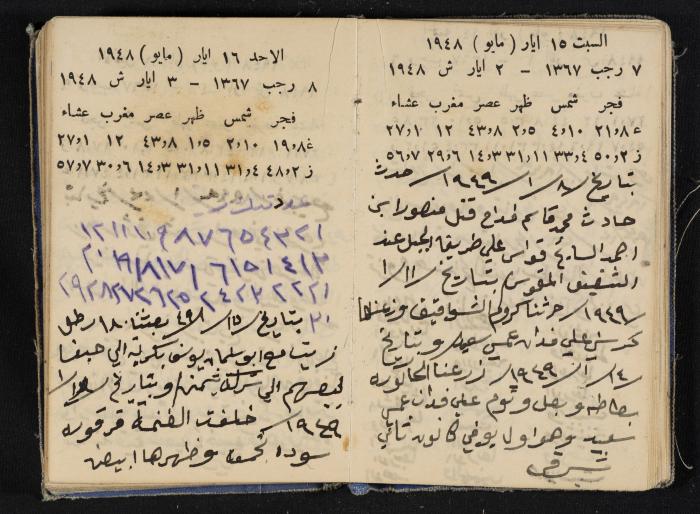 السبت ١٥ ايار ( مايو ) ١٩٤٨
٧ رجب ١٣٦٧ – ٢ ايار ش ١٩٤٨
فجر شمس ظهر عصر مغرب عشاء
غ ٢١و٨ ١٠و٤ ٥و٢ ٤٣و٨ ١٢ ٢٧و١
ز ٥٠و٢ ٣٣و٤ ٣١و١١ ١٤و٣ ٢٩و٦ ٥٦و٧
بتاريخ ٨/ ١/ ١٩٤٩/ حدث
حادث محمد قاسم فداح قتل منصور ابن
احمد السايح قواس علي طريقة الجبل عند
الشقيف المقوس بتاريخ ١١/ ١
١٩٤٩/ حرثنا كروم الشواقيف وزرعنا
علي فدان عمي سعيد وبتاريخ
١٤/ ١/ ١٩٤٩/ زرعنا الحاكوره
بطاطه وبصل وثوم علي فدان عمي
سعيد وهو اول يوم في كانون ثاني
شرقي
الاحد ١٦ ايار ( مايو ) ١٩٤٨
٨ رجب ١٣٦٧ – ٣ ايار ش ١٩٤٨
فجر شمس ظهر عصر مغرب عشاء
غ ١٩و٨ ١٠و٢ ٥و١ ٤٣و٨ ١٢ ٢٧و١
ز ٤٨و٢ ٣١و٤ ٣١و١١ ١٤و٣ ٣٠و٦ ٥٧و٧
١٢ ١١ ١٠ ٩ ٨ ٧ ٦ ٥ ٤ ٣ ٢ ١
٢٠ ١٩ ١٨ ١٧ ١٦ ١٥ ١٤ ١٣
٢٩ ٢٨ ٢٧ ٢٦ ٢٥ ٢٤ ٢٣ ٢٢ ٢١
٣٠
بتاريخ ١٥/ ١/ ٤٩ بعثنا ١٨٠ رطل
زيت مع ابو سلمان يوسف بكريه الي حيفا
الي شركة شمن وبتاريخ ١٨/ ١
١٩٤٩/ خلفت الغنمة قرقوره
سودا وظهرها ابيض